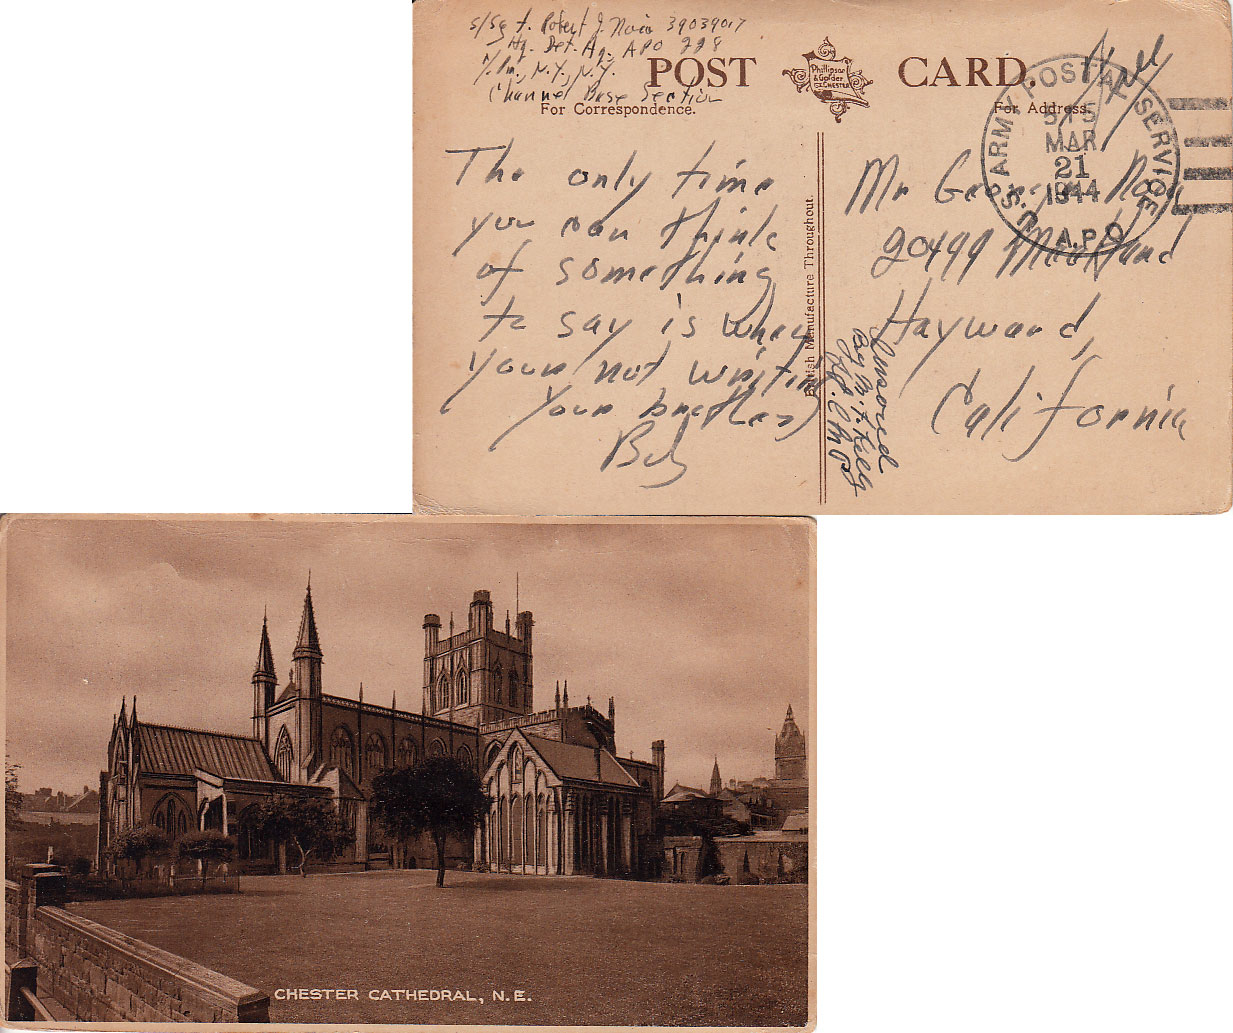 S/Sgt. Robert J. 39039017
Hq. Det. Hq., APO 228
℅ Pm, N.Y., N.Y.
Channel Base Section
POST CARD.
Phillipson
& Golder
CHESTER
For Correspondence.
For Address.
Free
The only time
you can think
of something
to say is when
your not writing
Your brother
Bob
British Manufacture Throughout.
Censored
By
U.S. ARMY POSTAL SERVICE
515
MAR
21
1944
A.P.O.
Mr George
20499
Hayward,
California
CHESTER CATHEDRAL, N. E.